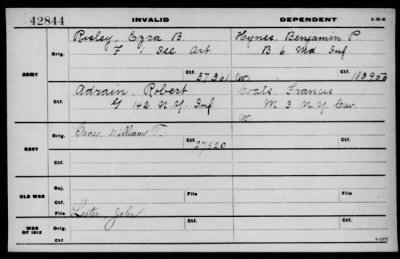 42844 INVALID DEPENDENT
ARMY
Orig. Risley, Ezra B. Hynes, Benjamin P
F 1 Art B 6 Md Inf
Ctf. Ctf. 183953
Adrain, Robert Coats, Francis
G 142 N.Y. Inf M 3 N.Y. Cav
Ctf. W
NAVY
Orig. William T. Orig.
Ctf. 27520 Ctf.
OLD WAR
Rej. File File
Ctf. Ctf.
WAR OF 1812
File Lester, John
Orig. Ctf. Orig. Ctf.